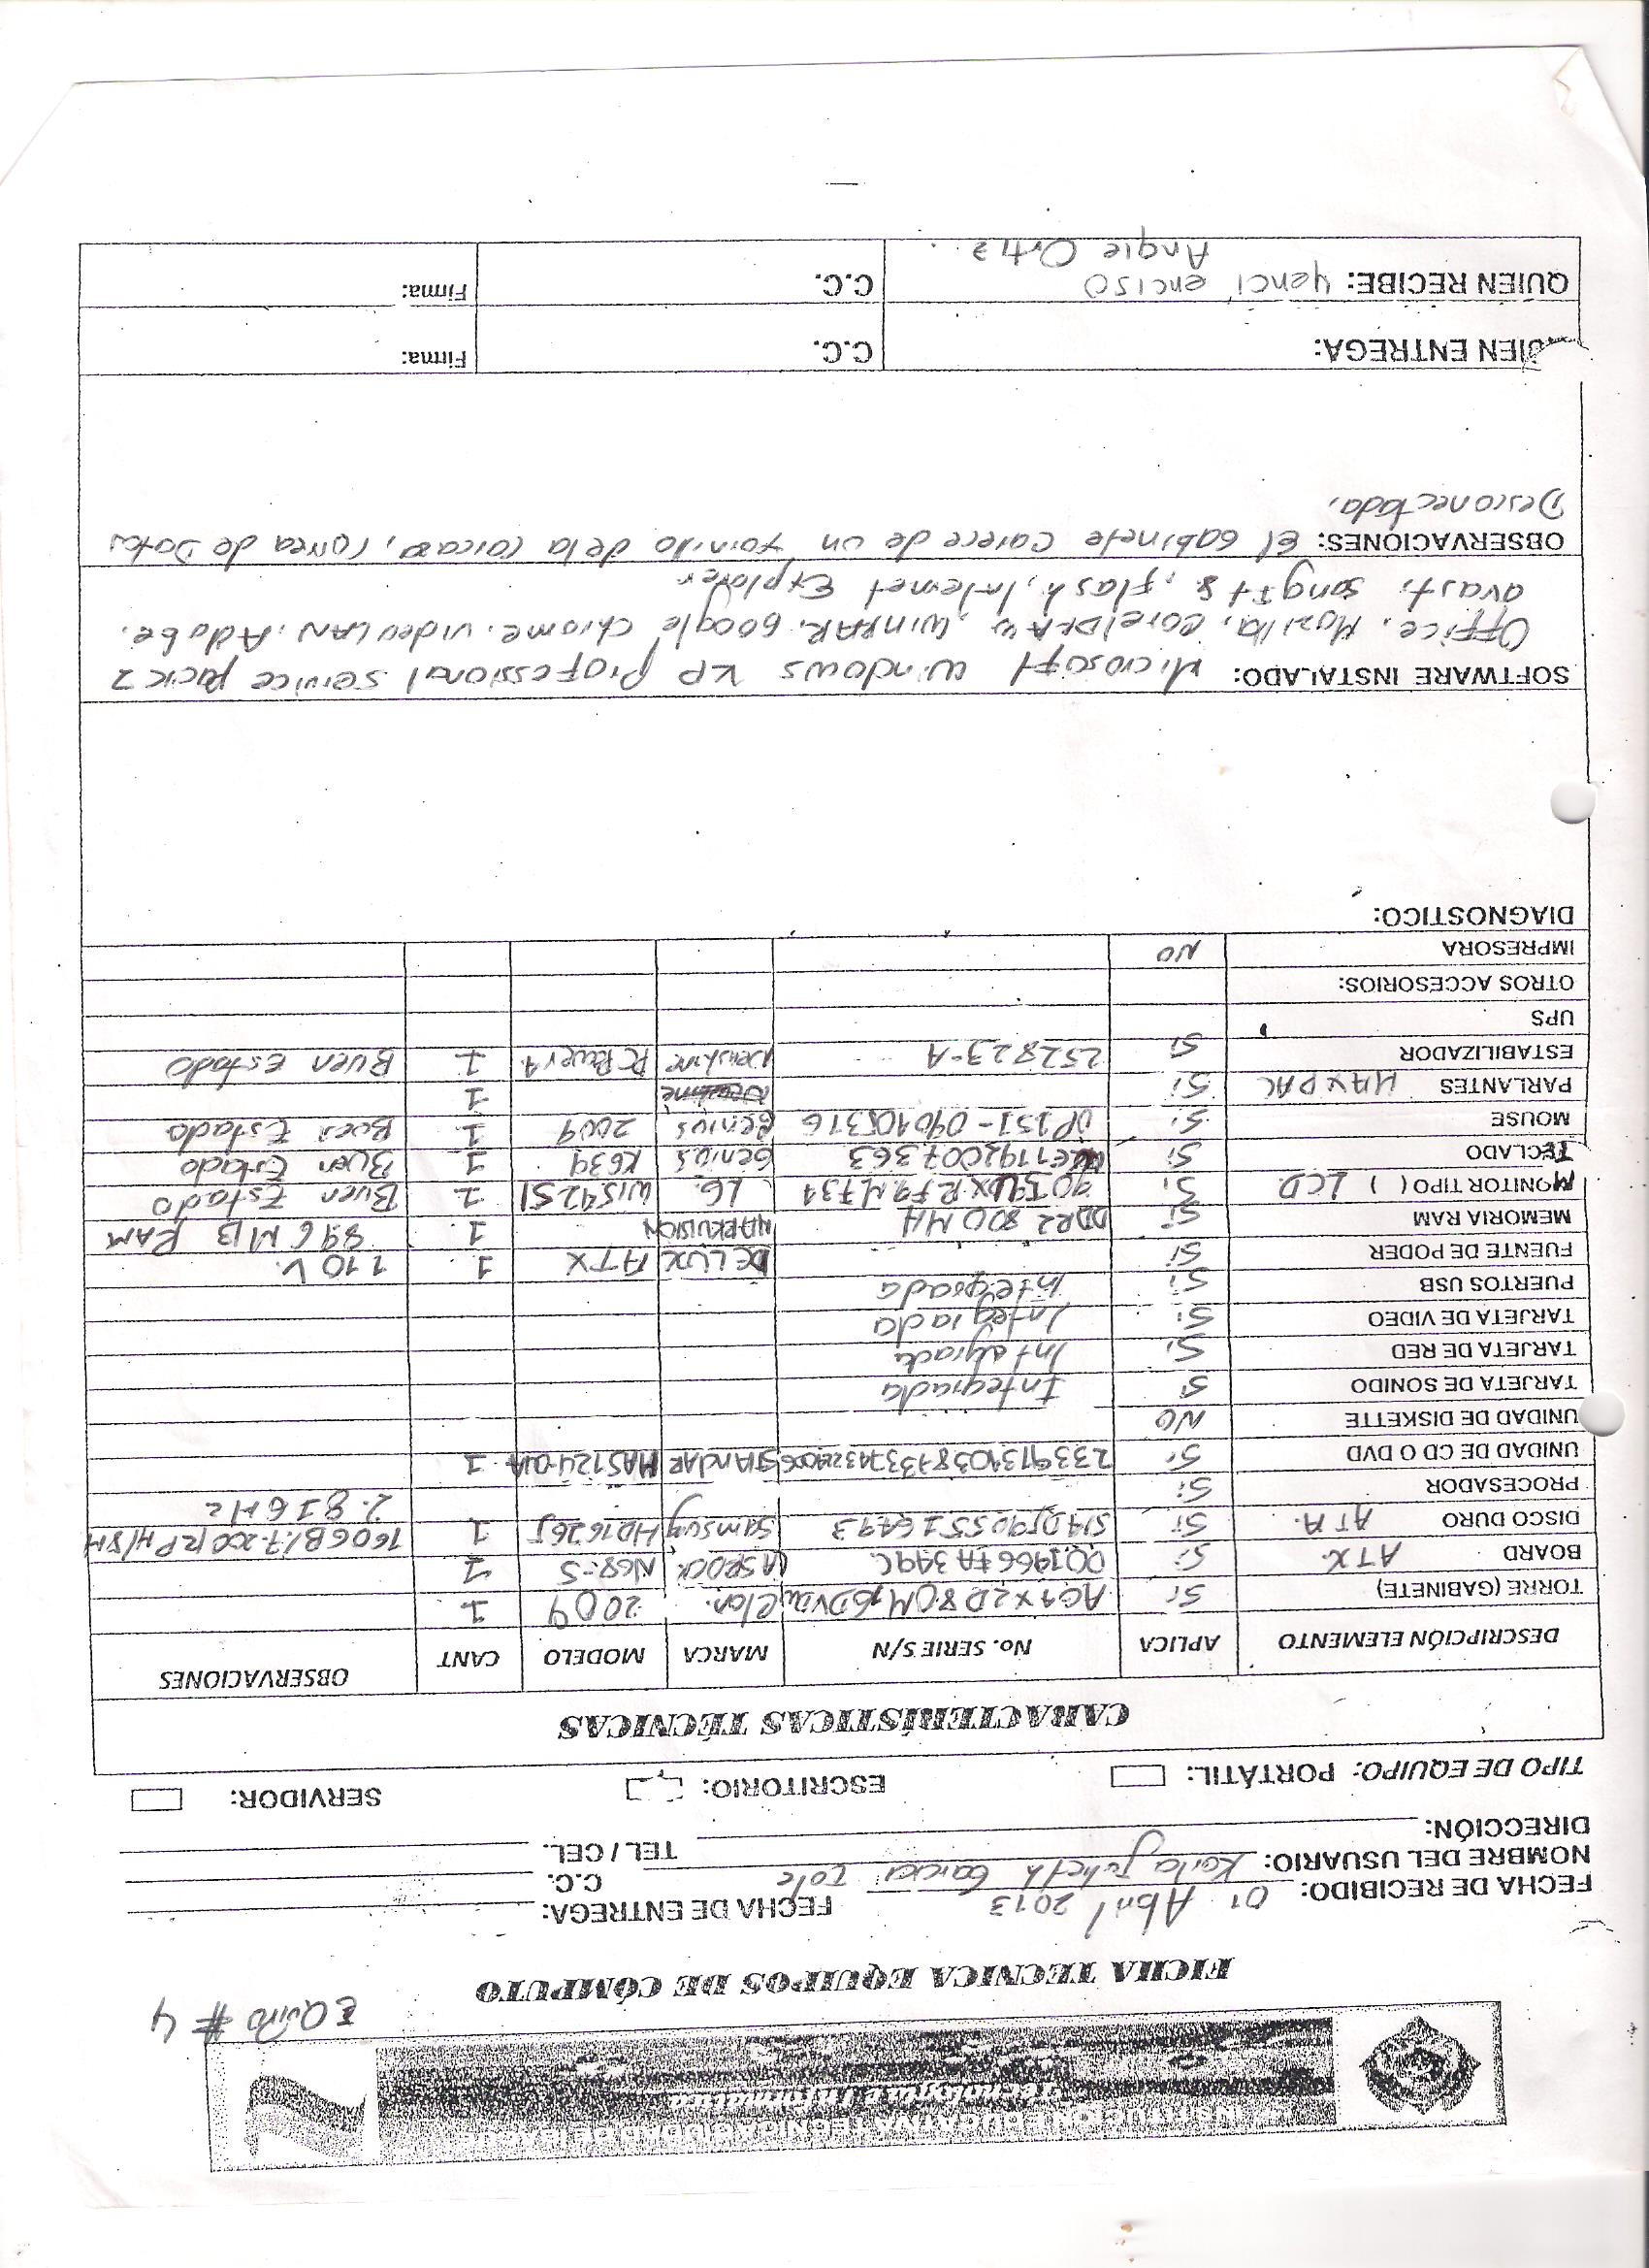 INSTITUCION EDUCATIVA TECNICA CIUDAD DE IBAGUE
Tecnología e Informática
EQUIPO # 4
FICHA TECNICA EQUIPOS DE CÓMPUTO
FECHA DE RECIBIDO: 01 Abril 2013 FECHA DE ENTREGA:
NOMBRE DEL USUARIO: Karla Julieth Garcia C.C.
DIRECCIÓN: TEL / CEL.
TIPO DE EQUIPO: PORTÁTIL: ESCRITORIO: SERVIDOR:
CARACTERÍSTICAS TÉCNICAS
DESCRIPCIÓN ELEMENTO APLICA No. SERIE S/N MARCA MODELO CANT OBSERVACIONES
TORRE (GABINETE) Si Clon. 2009 1
BOARD ATX Si ASROCK N68-S 1
DISCO DURO ATA. Si Samsung HD162GJ 1 160GB/7.200RPM/8M
PROCESADOR Si 2.81GHz
UNIDAD DE CD O DVD Si StAndAR 1
UNIDAD DE DISKETTE NO
TARJETA DE SONIDO Si Integrada
TARJETA DE RED Si Integrada
TARJETA DE VIDEO Si Integrada
PUERTOS USB Si Integrada
FUENTE DE PODER Si DELUX ATX 1 110 V.
MEMORIA RAM Si DDR2 800 MH MARKVISION 1 896 MB RAM
MONITOR TIPO ( ) LCD Si LG. W1542S 1 Buen Estado
TECLADO Si Genius K639 1 Buen Estado
MOUSE Si Genius 2009 1 Buen Estado
PARLANTES MAXPAC Si 1
ESTABILIZADOR Si 252823-A 1 Buen Estado
UPS
OTROS ACCESORIOS:
IMPRESORA NO
DIAGNOSTICO:
SOFTWARE INSTALADO: Microsoft windows XP Professional service pack 2
Office, Mozilla, CorelDRAW, WinRAR, Google chrome, videoLAN, Adobe,
avast, flash, Internet Explorer
OBSERVACIONES: El Gabinete carece de un tornillo de la carcasa, Correa de Datos
Desconectada,
QUIEN ENTREGA: C.C. Firma:
QUIEN RECIBE: yenci enciso C.C. Firma:
Angie Ortiz.